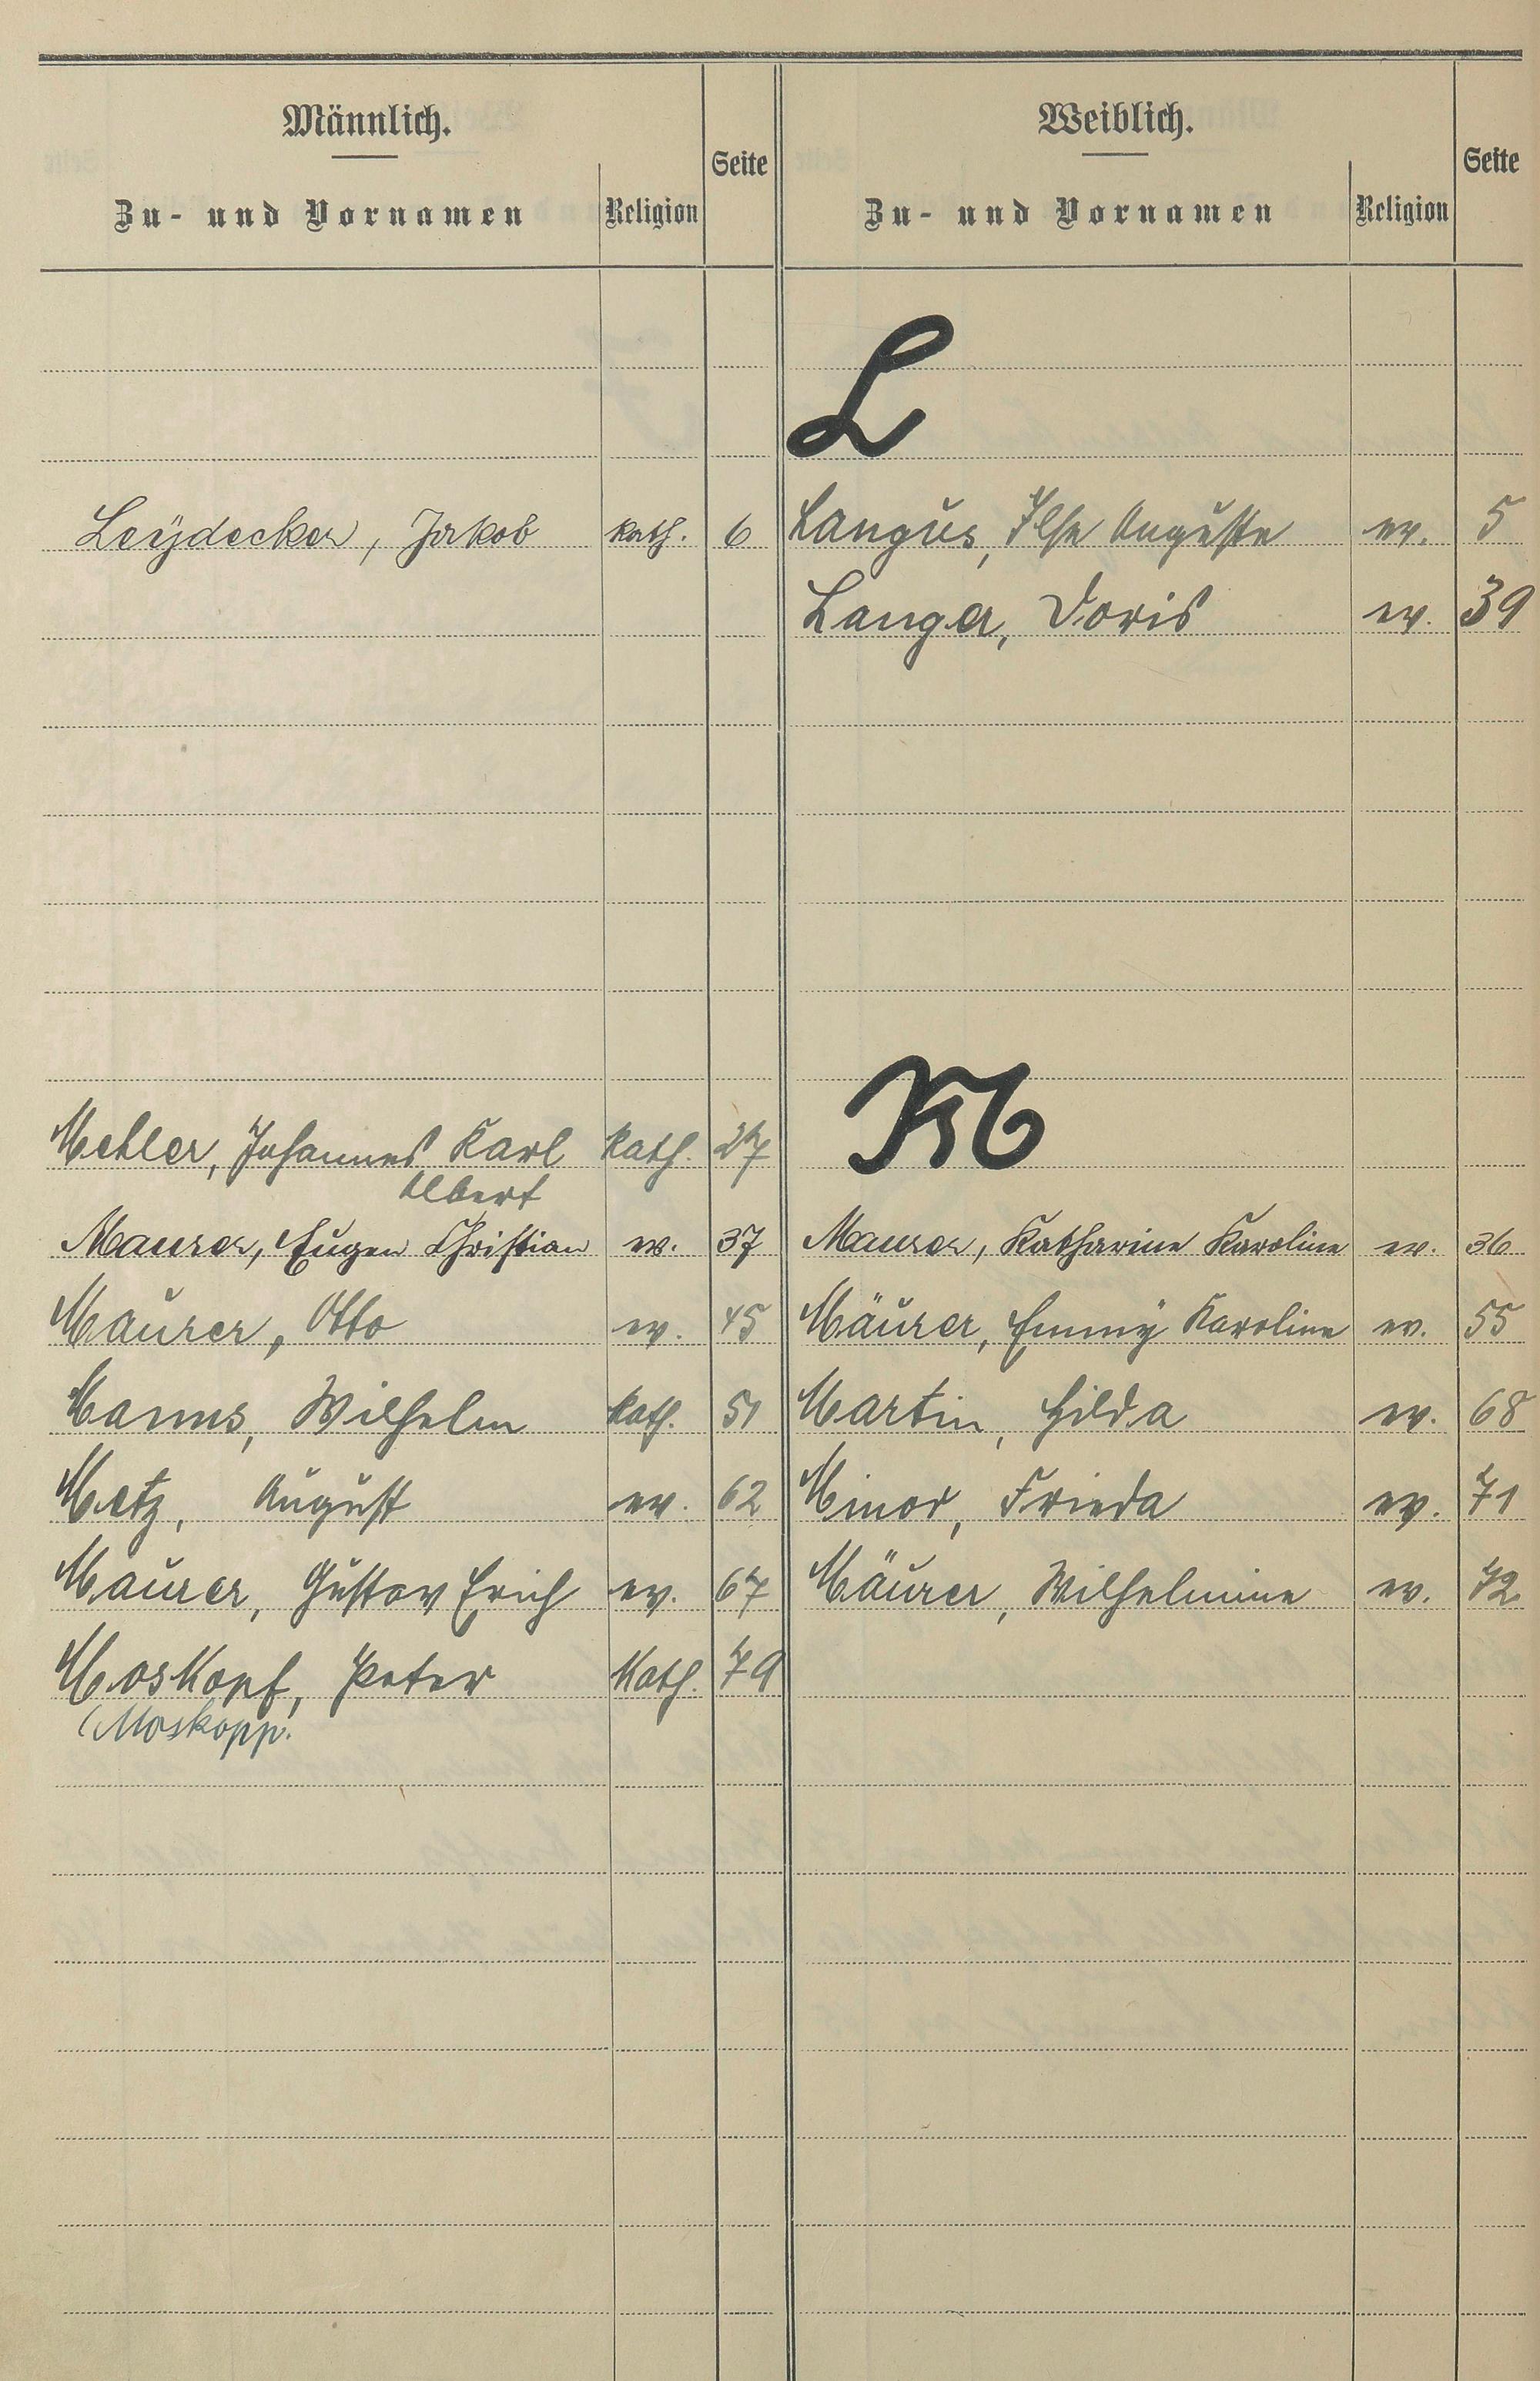 Männlich.
Zu- und Vornamen Religion Seite
Weiblich.
Zu- und Vornamen Religion Seite
L
Leÿdecker, Jakob kath. 6 Langus, Ilse Auguste ev. 5
Langer, Doris ev. 39
M
Mehler, Johannes Karl kath. 27
Albert
Maurer, Eugen Christian ev. 37 Maurer, Katharine Karoline ev. 36
Maurer, Otto ev. 45 Mäurer, Emmÿ Karoline ev. 55
Manns, Wilhelm kath. 51 Martin, Hilda ev. 68
Metz, August ev. 62 Minor, Frieda ev. 71
Maurer, Gustav Erich ev. 67 Mäurer, Wilhelmine ev. 72
Moskopf, Peter Kath. 79
(Moskopp.